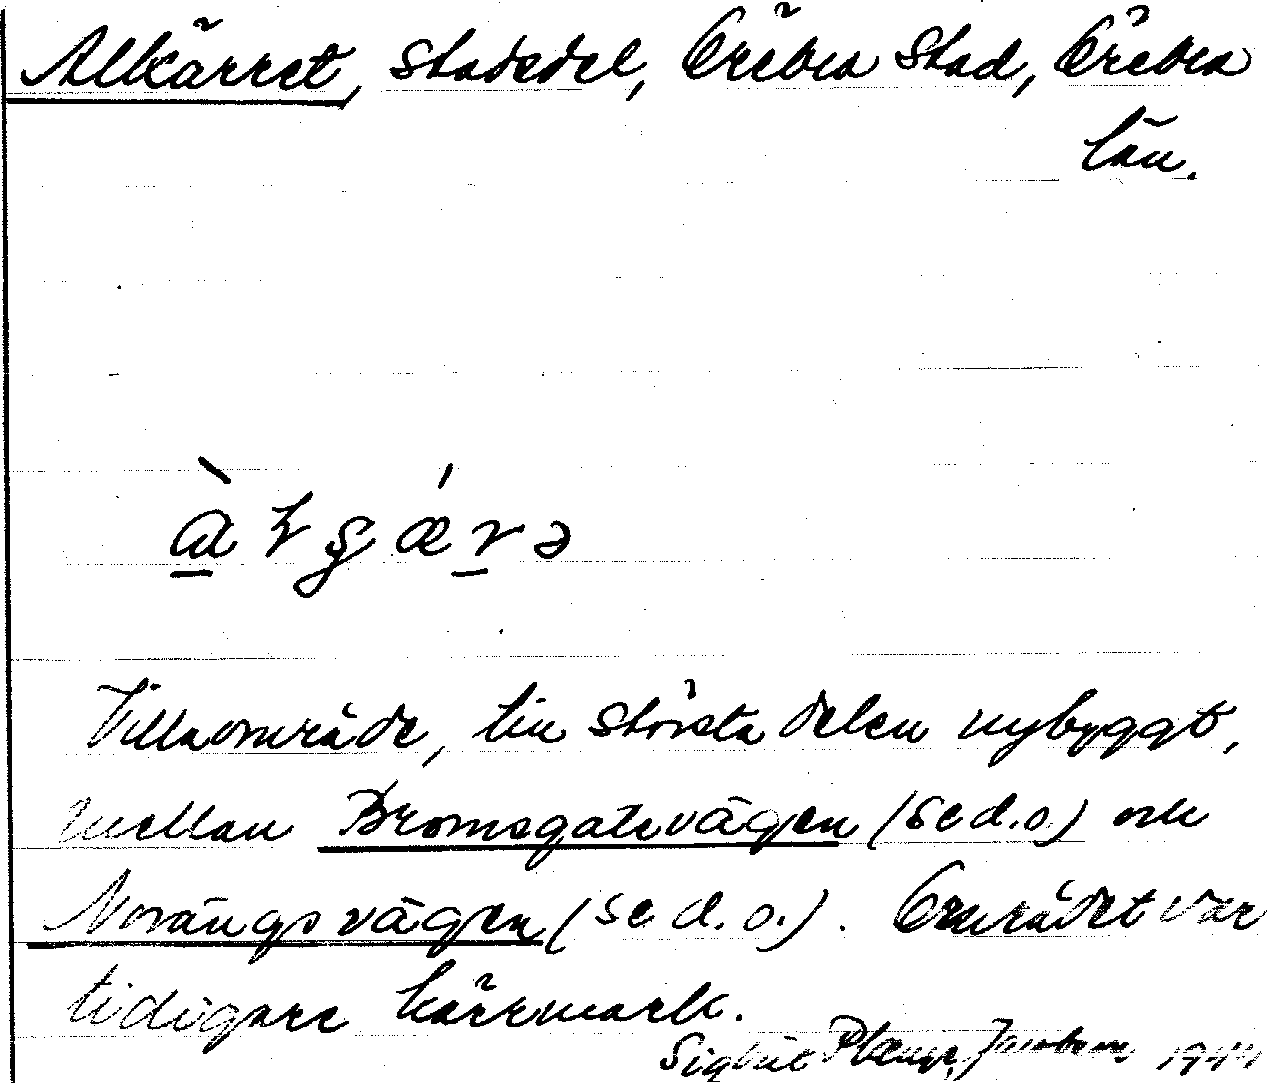 Alkärret, stadsdel, Örebro stad, Örebro
län.
Villaområde, till största delen nybyggt,
mellan Bromsgatevägen (se d.o.) och
Norängsvägen (se d.o.). Området var
tidigare kärrmark.
1944